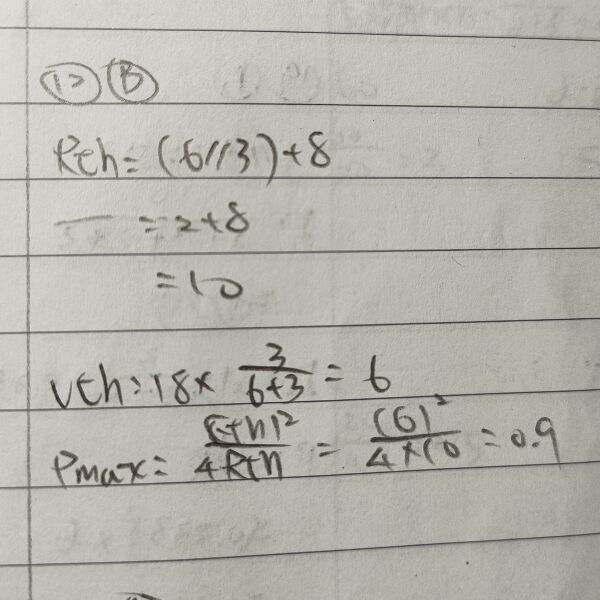 12 B
Rth = (6//3)+8
= 2+8
= 10
Vth = 18× 3/(6+3) = 6
Pmax = (Eth)²/4Rth = (6)²/4×10 = 0.9